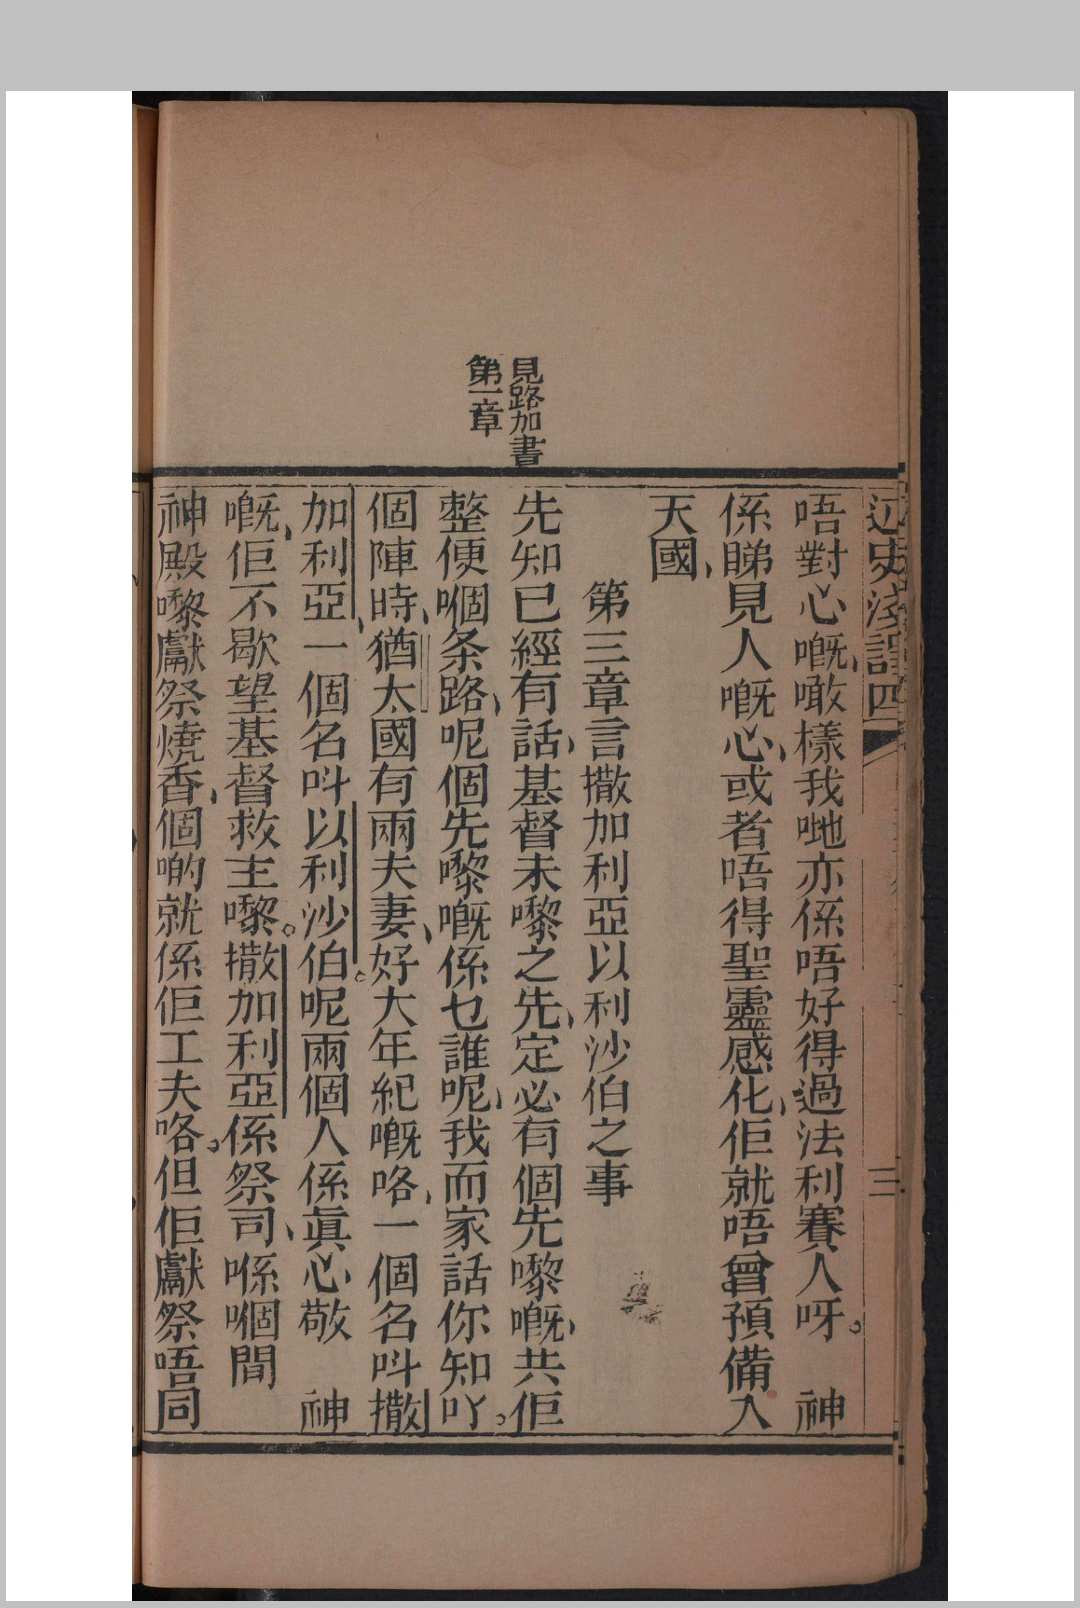 見路加書
第一章
唔對心嘅、噉樣我哋亦係唔好得過法利賽人呀。神
係睇見人嘅心、或者唔得聖靈感化、佢就唔曾預備入
天國、
第三章言撒加利亞以利沙伯之事
先知已經有話、基督未嚟之先、定必有個先嚟嘅、共佢
整便嗰条路、呢個先嚟嘅係乜誰呢、我而家話你知吖。
個陣時、猶太國有兩夫妻、好大年紀嘅咯、一個名呌撒
加利亞、一個名呌以利沙伯。呢兩個人係眞心敬神
嘅、佢不歇望基督救主嚟。撒加利亞係祭司、喺嗰間
神殿嚟獻祭燒香、個啲就係佢工夫咯。但佢獻祭唔同